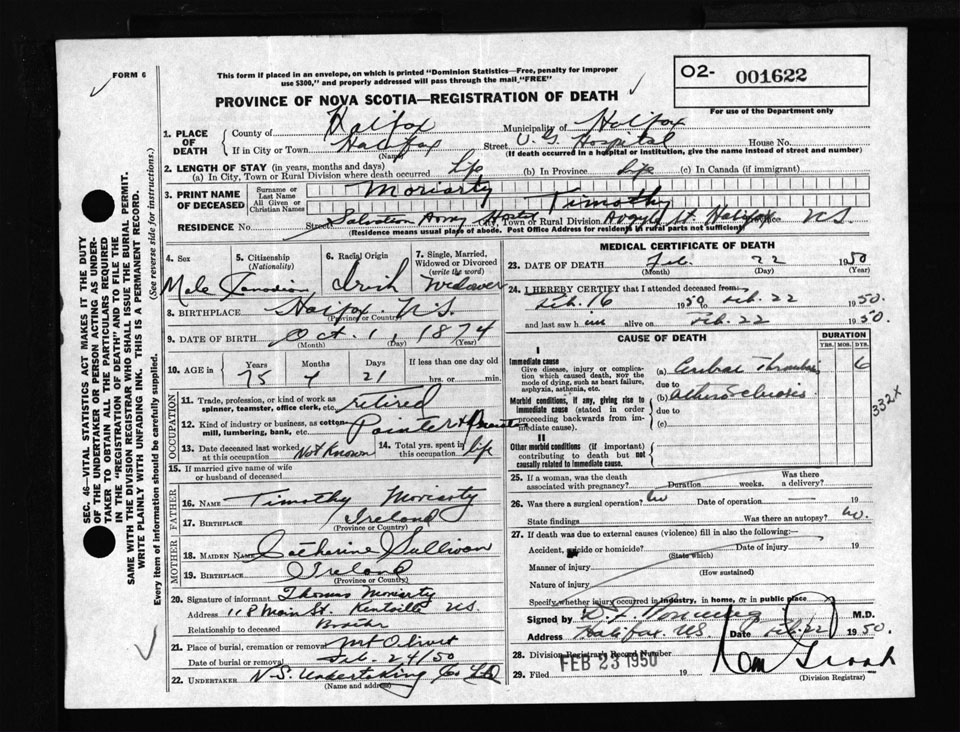 FORM 6
This form if placed in an envelope, on which is printed "Dominion Statistics—Free, penalty for improper
use $300," and properly addressed will pass through the mail, "FREE"
O2- 001622
For use of the Department only
PROVINCE OF NOVA SCOTIA—REGISTRATION OF DEATH
1. PLACE OF DEATH
County of Halifax Municipality of Halifax
If in City or Town Halifax Street V.G. Hospital House No.
(Name) (If death occurred in a hospital or institution, give the name instead of street and number)
2. LENGTH OF STAY (in years, months and days)
(a) In City, Town or Rural Division where death occurred life (b) In Province life (c) In Canada (if immigrant)
3. PRINT NAME OF DECEASED
Surname or Last Name Moriarty
All Given or Christian Names Timothy
RESIDENCE No. Street Salvation Army Hostel City, Town or Rural Division Argyle St. Halifax N.S.
(Residence means usual place of abode. Post Office Address for residents in rural parts not sufficient)
4. Sex 5. Citizenship (Nationality) 6. Racial Origin 7. Single, Married, Widowed or Divorced (write the word)
Male Canadian Irish Widower
8. BIRTHPLACE Halifax N.S.
(Province or Country)
9. DATE OF BIRTH Oct. 1 1874
(Month) (Day) (Year)
10. AGE in Years Months Days If less than one day old
75 4 21 hrs. or min.
OCCUPATION
11. Trade, profession, or kind of work as spinner, teamster, office clerk, etc. retired
12. Kind of industry or business, as cotton mill, lumbering, bank, etc. Painter
13. Date deceased last worked at this occupation Not Known 14. Total yrs. spent in this occupation life
15. If married give name of wife or husband of deceased
FATHER
16. NAME Timothy Moriarty
17. BIRTHPLACE Ireland
(Province or Country)
MOTHER
18. MAIDEN NAME Catherine Sullivan
19. BIRTHPLACE Ireland
(Province or Country)
20. Signature of informant Thomas Moriarty
Address 118 Main St. Kentville N.S.
Relationship to deceased Brother
21. Place of burial, cremation or removal Mt Olivet
Date of burial or removal Feb. 24/50
22. UNDERTAKER N.S. Undertaking Co Ltd
(Name and address)
MEDICAL CERTIFICATE OF DEATH
23. DATE OF DEATH Feb. 22 1950
(Month) (Day) (Year)
24. I HEREBY CERTIFY that I attended deceased from
Feb. 16 1950 to Feb. 22 1950.
and last saw him alive on Feb. 22 1950.
CAUSE OF DEATH DURATION
YRS. MOS. DYS.
I
Immediate cause
Give disease, injury or complication which caused death, NOT the mode of dying, such as heart failure, asphyxia, asthenia, etc.
(a) Cerebral Thrombosis 6
due to
Morbid conditions, if any, giving rise to immediate cause (stated in order proceeding backwards from immediate cause).
(b) atherosclerosis
due to
(c)
332X
II
Other morbid conditions (if important) contributing to death but not causally related to immediate cause.
25. If a woman, was the death associated with pregnancy? Duration weeks. Was there a delivery?
26. Was there a surgical operation? No Date of operation 19
State findings Was there an autopsy? No.
27. If death was due to external causes (violence) fill in also the following:
Accident, suicide or homicide? Date of injury 19
(State which)
Manner of injury
(How sustained)
Nature of injury
Specify whether injury occurred in industry, in home, or in public place
Signed by M.D.
Address Halifax N.S. Date Feb. 22 1950.
28. Division Registrar's Record Number
FEB 23 1950
29. Filed 19
(Division Registrar)
SEC. 46—VITAL STATISTICS ACT MAKES IT THE DUTY
OF THE UNDERTAKER OR PERSON ACTING AS UNDERTAKER TO OBTAIN ALL THE PARTICULARS REQUIRED
IN THE "REGISTRATION OF DEATH" AND TO FILE THE
SAME WITH THE DIVISION REGISTRAR WHO SHALL ISSUE THE BURIAL PERMIT.
WRITE PLAINLY WITH UNFADING INK. THIS IS A PERMANENT RECORD.
Every item of information should be carefully supplied. (See reverse side for instructions.)